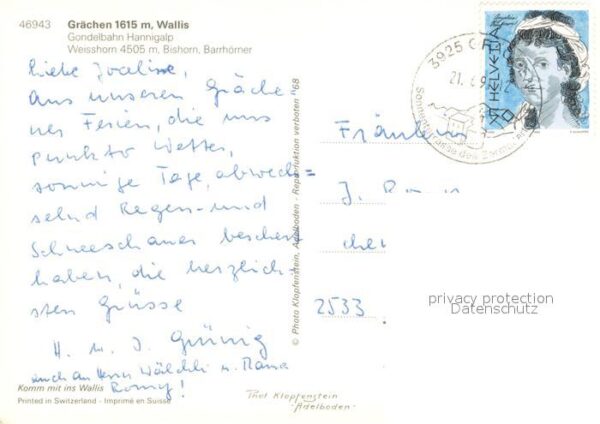 46943 Grächen 1615 m, Wallis
Gondelbahn Hannigalp
Weisshorn 4505 m, Bishorn, Barrhörner
Liebe
Aus unseren Gräche
ner Ferien, die uns
punkto Wetter,
sonnige Tage, abwech=
selnd Regen- und
Schneeschauer beschert
haben, die herzlich-
sten Grüsse
H. u. J. Grünig
auch an Herrn Wälchli u.
Romy!
Komm mit ins Wallis
Printed in Switzerland - Imprimé en Suisse
© Photo Klopfenstein, Adelboden - Reproduktion verboten
Thof Klopfenstein
-Adelboden-
3925 GR
21. 6 8
HELVETIA
Fräulein
J.
2533
privacy protection
Datenschutz